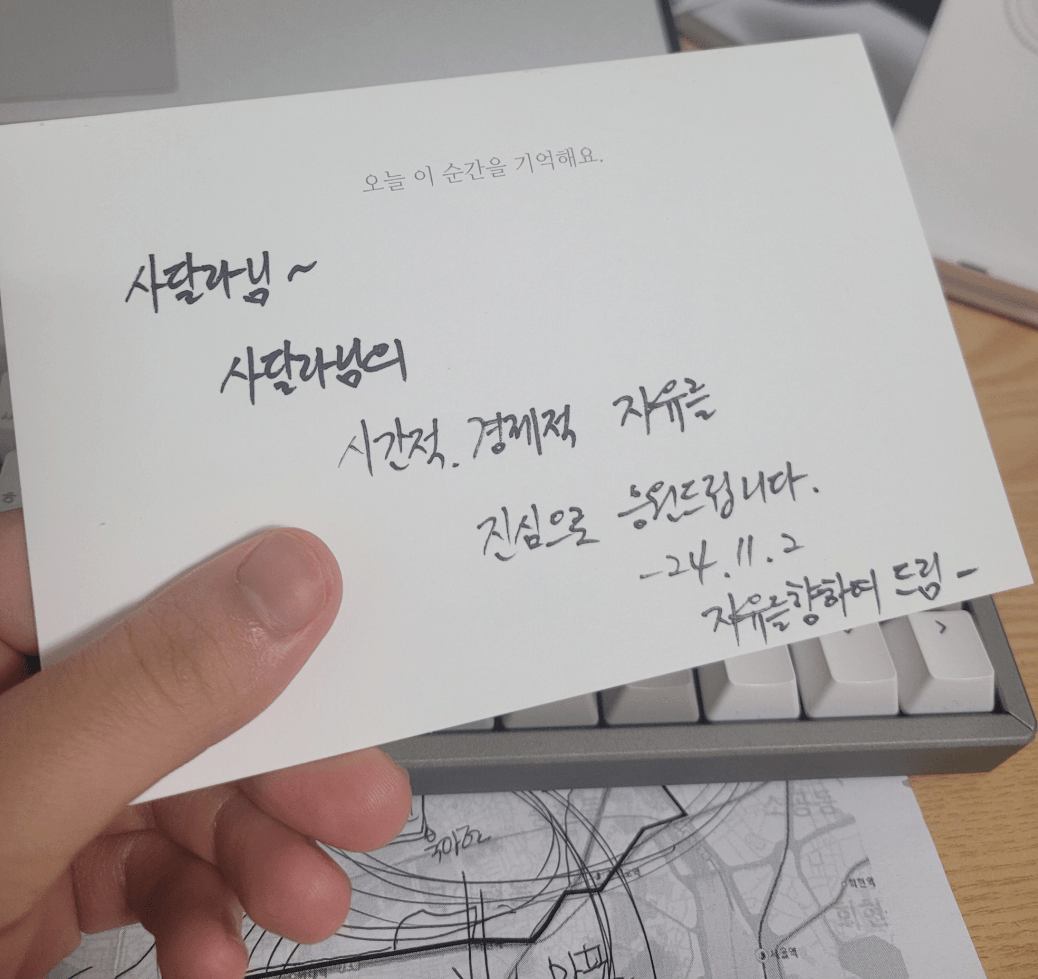 오늘 이 순간을 기억해요.
사달라님~
사달라님의
시간적. 경제적 자유를
진심으로 응원드립니다.
-24.11.2
자유를향하여 드림-
서울역